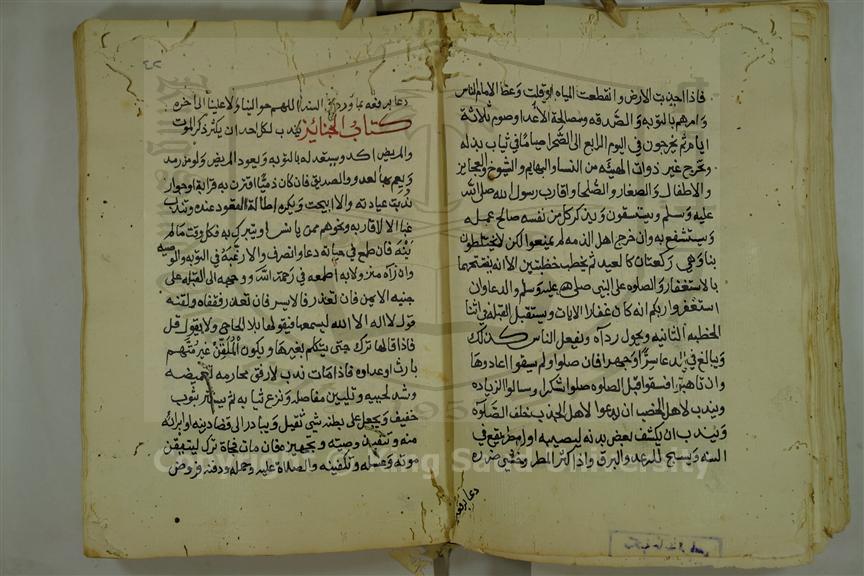 فاذا اجدبت الارض وانقطعت المياه او قلت وعظ الامام الناس
وامرهم بالتوبه والصدقه ومصالحة الاعدا وصوم ثلاثة
ايام ثم يخرجون في اليوم الرابع الى الصحرا صياما في ثياب بذله
ويخرج غير ذوات الهيئه من النسا والبهايم والشيوخ والعجايز
والاطفال والصغار والصلحا واقارب رسول الله صلى الله
عليه وسلم ويستسقون ويذكر كل من نفسه صالح عمله
ويستشفع به وان خرج اهل الذمه لم يمنعوا لكن لا يختلطون
بنا وهي ركعتان كالعيد ثم يخطب خطبتين الا انه يفتتحهما
بالاستغفار والصلوه على النبي صلى الله عليه وسلم والدعا وان
استغفروا ربكم انه كان غفارا الايات ويستقبل القبله في اثنا
الخطبه الثانيه ويحول رداه ويفعل الناس كذلك
ويبالغ في الدعا سرا وجهرا فان صلوا ولم يسقوا اعادوها
وان تاهبوا فسقوا قبل الصلوه صلوا شكرا وسالوا الزياده
ويندب لاهل الخصب ان يدعوا لاهل الجدب خلف الصلوه
ويندب ان يكشف بعض بدنه ليصيبه اول مطر يقع في
السنه ويسبح للرعد والبرق واذا كثر المطر وخشي ضرره
دعا برفعه
٤٢
دعا برفعه بما ورد في السنه اللهم حوالينا ولا علينا الى اخره
كتاب الجنايز يندب لكل احد ان يكثر ذكر الموت
والمريض اكد ويستعد له بالتوبه ويعود المريض ولو من رمد
ويعم بها العدو والصديق فان كان ذميا اقترنت به قرابة او جوار
ندبت عيادته والا ابيحت ويكره اطالة القعود عنده وتندب
غبا الا لاقاربه ونحوهم ممن يانس او يتبرك به فكل وقت ما لم
ينه فان طمع في حياته دعا وانصرف والا رغبه في التوبه والوصيه
وان راه منزولا به اطمعه في رحمة الله ووجهه الى القبله على
جنبه الايمن فان تعذر فالايسر فان تعذر فقفاه ولقنه
قول لا اله الا الله ليسمعها فيقولها بلا الحاح ولا يقول قل
فاذا قالها ترك حتى يتكلم بغيرها ويكون الملقن غير متهم
بارث او عداوه فاذا مات ندب لارفق محارمه تغميضه
وشد لحييه وتليين مفاصله ونزع ثيابه ثم يستر بثوب
خفيف ويجعل على بطنه شي ثقيل ويبادر الى قضا دينه او ابرائه
منه وتنفيذ وصيته وتجهيزه فان مات فجاة ترك ليتيقن
موته وغسله وتكفينه والصلاة عليه وحمله ودفنه فروض
Copyright © King Saud University